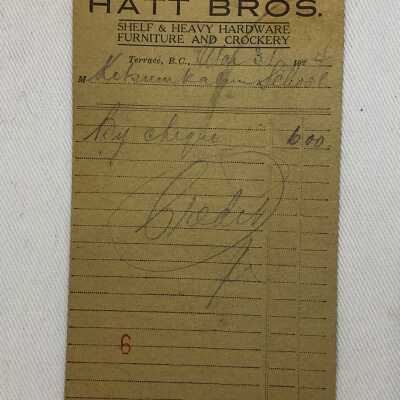 HATT BROS.
SHELF & HEAVY HARDWARE
FURNITURE AND CROCKERY
Terrace, B.C., Mar 31, 1924
M Kitsumkalum School
By cheque 6.00
Credit
6